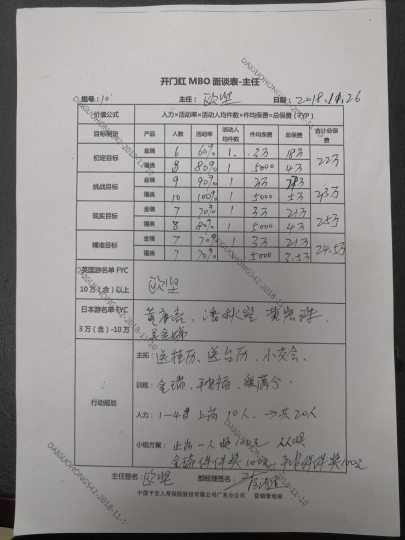 开门红 MBO 面谈表-主任
组号: 10 主任: 欧坚 日期: 2018.11.26
价值公式 人力×活动率×活动人均件数×件均保费=总保费（FYP）
目标制定 产品 人数 活动率 活动人均件数 件均保费 总保费 合计总保费
初定目标 金瑞 6 60% 1 3万 18万 22万
福类 8 80% 1 5000 4万
挑战目标 金瑞 9 90% 1 3万
福类 10 100% 1 5000 5万
现实目标 金瑞 7 70% 1 3万 21万 25万
福类 8 80% 1 5000 4万
精准目标 金瑞 7 70% 1 3万 21万 24.5万
福类 7 70% 1 5000 3.5万
英国游名单 FYC
10 万（含）以上 欧坚
日本游名单 FYC
3 万（含）-10万
行动规划
主拓: 送挂历、送台历、小交会
训练: 金瑞、平福
人力: 1—4月 上岗 10人, →共20人
小组方案: 上岗一人奖100元
金瑞件件奖100元
主任签名: 欧坚 部经理签名:
中国平安人寿保险股份有限公司广东分公司 营销管理部
DAIGUOHONG542-2018-11-10